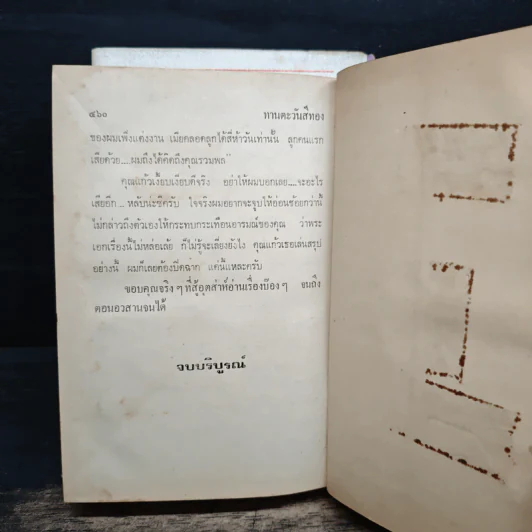 ๔๖๐ ทานตะวันสีทอง
ของผมเพิ่งแต่งงาน เมียคลอดลูกได้สี่ห้าวันเท่านั้น ลูกคนแรก
เสียด้วย....ผมถึงได้คิดถึงคุณรวมพล"
คุณแก้วเงียบเงียบดีจริง อย่าให้ผมบอกเลย....จะอะไร
เสียอีก... หลับน่ะซีครับ ใจจริงผมอยากจะจูบให้อ่อนช้อยกว่านี้
ไม่กล่าวถึงตัวเองให้กระทบกระเทือนอารมณ์ของคุณ ว่าพระ
เอกเรื่องนี้ไม่หล่อเลย ก็ไม่รู้จะเลี่ยงยังไง คุณแก้วเธอเล่นสรุป
อย่างนี้ ผมก็เลยต้องปิดฉาก แค่นี้แหละครับ
ขอบคุณจริง ๆ ที่สู้อุตส่าห์อ่านเรื่องบ๊อง ๆ จนถึง
ตอนอวสานจนได้
จบบริบูรณ์